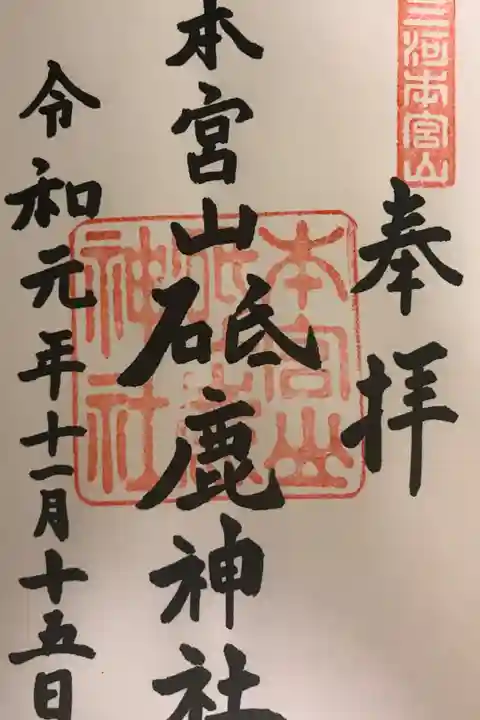 三河本宮山
奉拝
本宮山砥鹿神社
本宮山砥鹿神社
令和元年十一月十五日